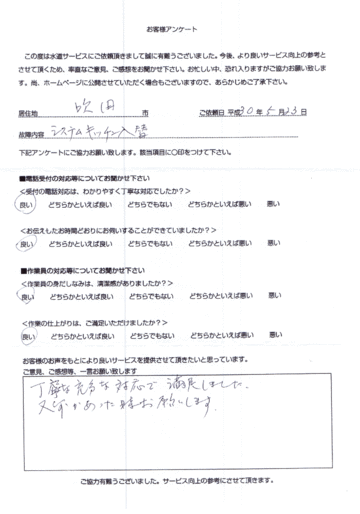 お客様アンケート
この度は水道サービスにご依頼頂きまして誠に有難うございました。今後、より良いサービス向上の参考と
させて頂くため、率直なご意見、ご感想をお聞かせ下さい。お忙しい中、恐れ入りますがご協力お願い致しま
す。尚、ホームページに公開させていただく場合もございますので、あらかじめご了承下さい。
居住地 吹田 市 ご依頼日 平成30年5月23日
故障内容 システムキッチン入替
下記アンケートにご協力お願い致します。該当項目に〇印をつけて下さい。
■電話受付の対応等についてお聞かせ下さい
<受付の電話対応は、わかりやすく丁寧な対応でしたか?>
良い どちらかといえば良い どちらでもない どちらかといえば悪い 悪い
<お伝えしたお時間どおりにお伺いすることができていましたか?>
良い どちらかといえば良い どちらでもない どちらかといえば悪い 悪い
■作業員の対応等についてお聞かせ下さい
<作業員の身だしなみは、清潔感がありましたか?>
良い どちらかといえば良い どちらでもない どちらかといえば悪い 悪い
<作業の仕上がりは、ご満足いただけましたか?>
良い どちらかといえば良い どちらでもない どちらかといえば悪い 悪い
お客様のお声をもとにより良いサービスを提供させて頂きたいと思っています。
ご意見、ご感想等、一言お願い致します
丁寧な 対応で 満足しました。
又 あった時お願いします。
ご協力有難うございました。サービス向上の参考にさせて頂きます。